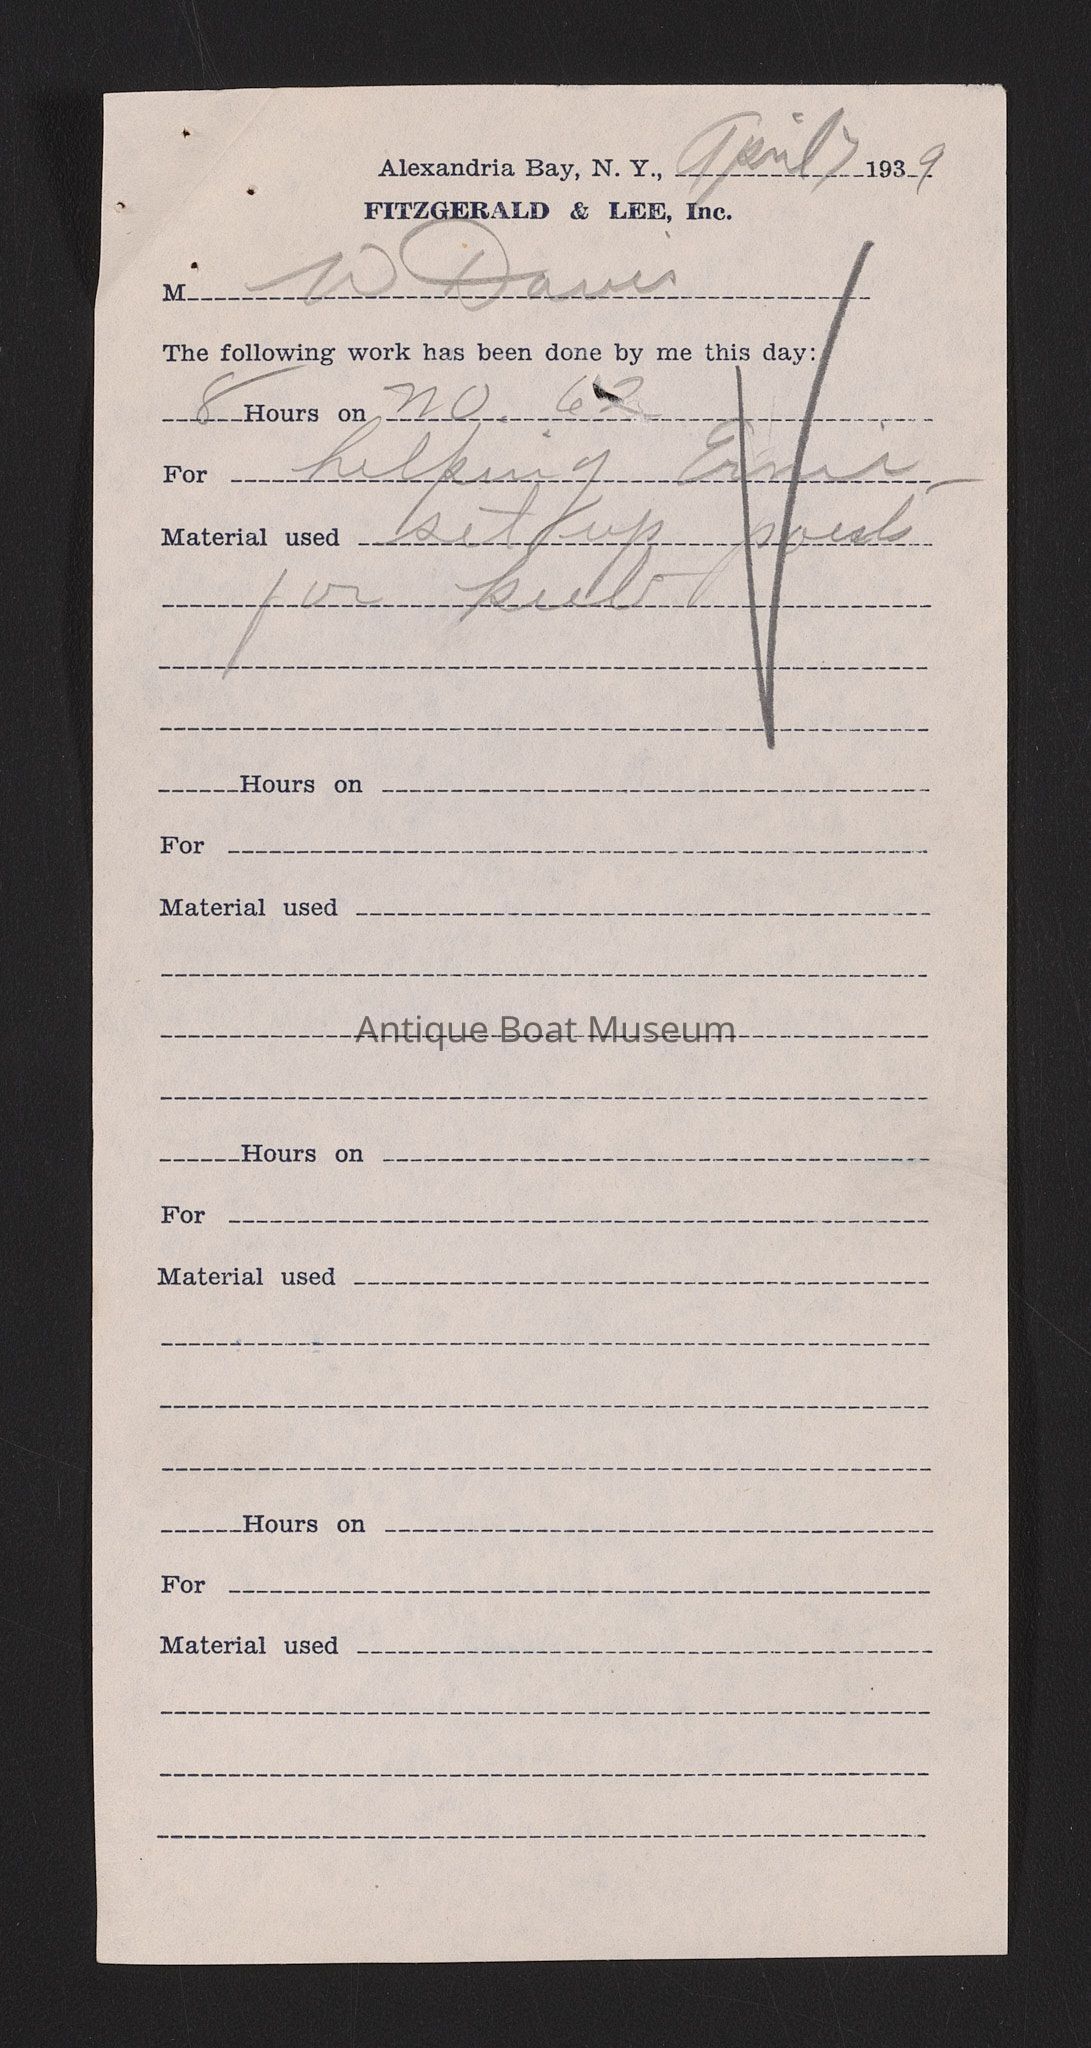 Alexandria Bay, N. Y., April 7 1939
FITZGERALD & LEE, Inc.
M W Davis
The following work has been done by me this day:
8 Hours on no. 62
For helping Ernie
Material used set up posts
for keel
Hours on
For
Material used
Antique Boat Museum
Hours on
For
Material used
Hours on
For
Material used